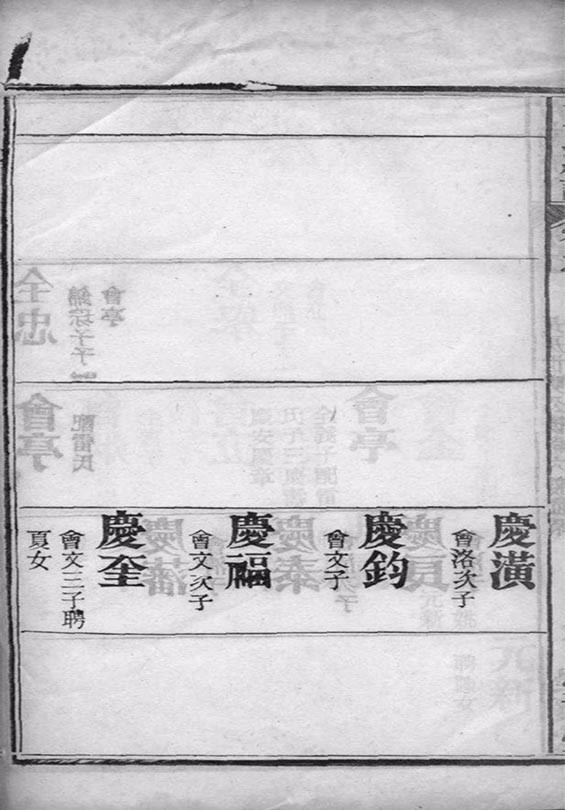 慶潢
會洛次子
慶鈞
會文子
慶福
會文次子
慶奎
會文三子聘
夏女